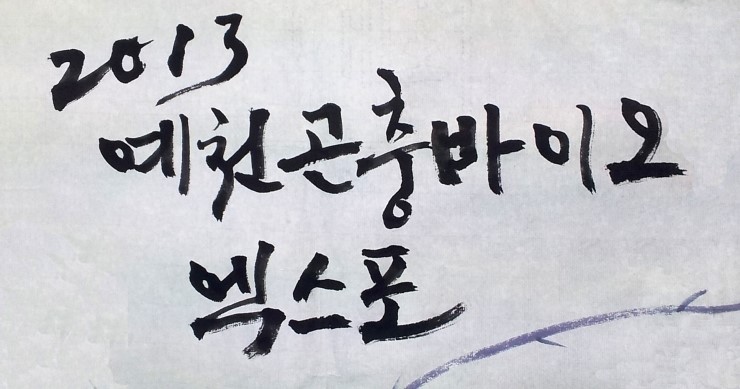 2013
예천곤충바이오
엑스포